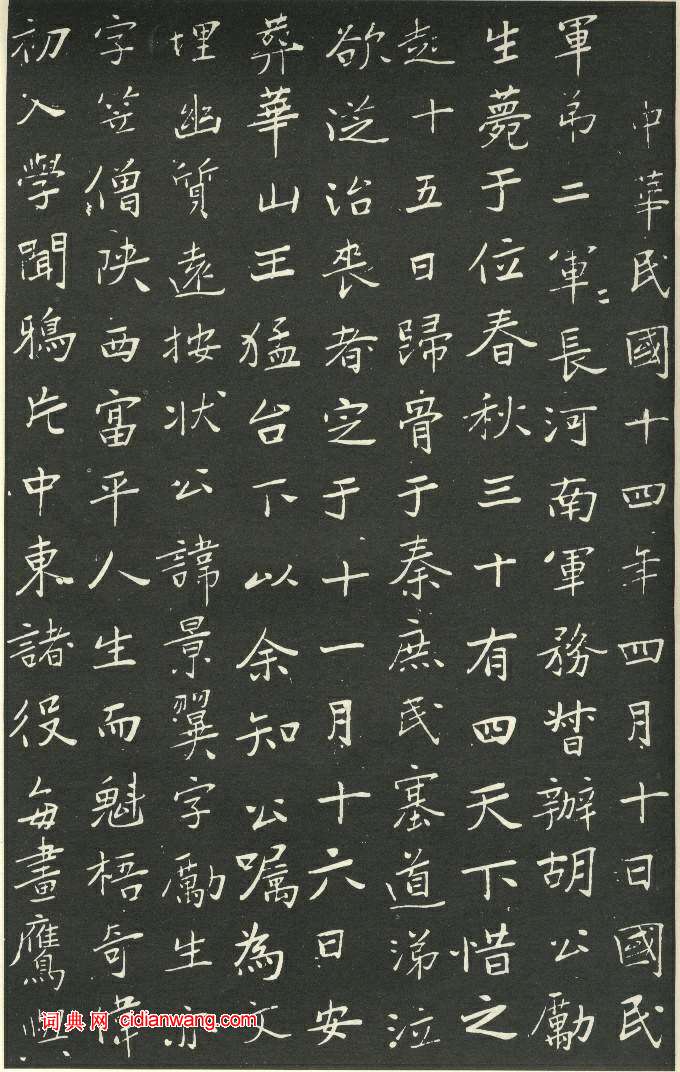 中華民國十四年四月十日國民
軍弟二軍〻長河南軍務督辦胡公勵
生薨于位春秋三十有四天下惜之
越十五日歸骨于秦庶民塞道涕泣
欲從治喪者定于十一月十六日安
葬華山王猛台下以余知公嘱為文
埋幽質遠按狀公諱景翼字勵生亦
字笠僧陝西富平人生而魁梧奇偉
初入學聞鴉片中東諸役每畫鷹
词典网 cidianwang.com